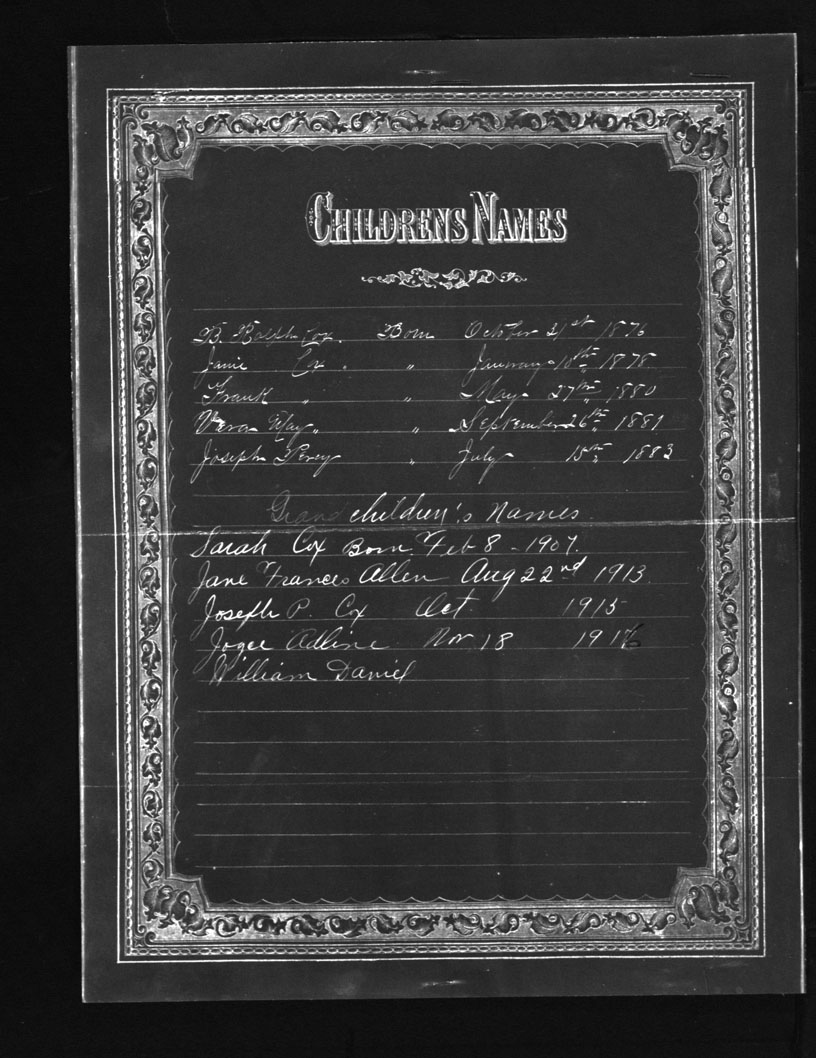 CHILDRENS NAMES
B. Ralph Cox. Born October 31st 1876
Janie Cox. " January 10th 1878
Frank " " May 27th 1880
Vera May " " September 26th 1881
Joseph Percy " July 15th 1883
Grandchildren's Names
Sarah Cox Born Feb 8 - 1907.
Jane Frances Allen Aug 22nd 1913.
Joseph P. Cox Oct 1915
Joyce Adline Nov 18 1916
William Daniel